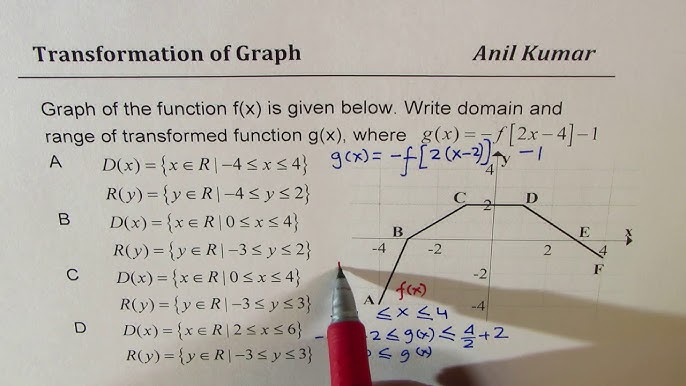 Transformation of Graph Anil Kumar
Graph of the function f(x) is given below. Write domain and
range of transformed function g(x), where g(x) = -f[2x-4]-1
g(x) = -f[2(x-2)] -1
A D(x) = {x ∈ R | -4 ≤ x ≤ 4}
R(y) = {y ∈ R | -4 ≤ y ≤ 2}
B D(x) = {x ∈ R | 0 ≤ x ≤ 4}
R(y) = {y ∈ R | -3 ≤ y ≤ 2}
C D(x) = {x ∈ R | 0 ≤ x ≤ 4}
R(y) = {y ∈ R | -3 ≤ y ≤ 3}
D D(x) = {x ∈ R | 2 ≤ x ≤ 6}
R(y) = {y ∈ R | -3 ≤ y ≤ 3}
y
4
C 2 D
B E x
-4 -2 2 4
F
-2
A f(x) -4
≤ x ≤ 4
2 ≤ g(x) ≤ 4/2 + 2
≤ g(x)